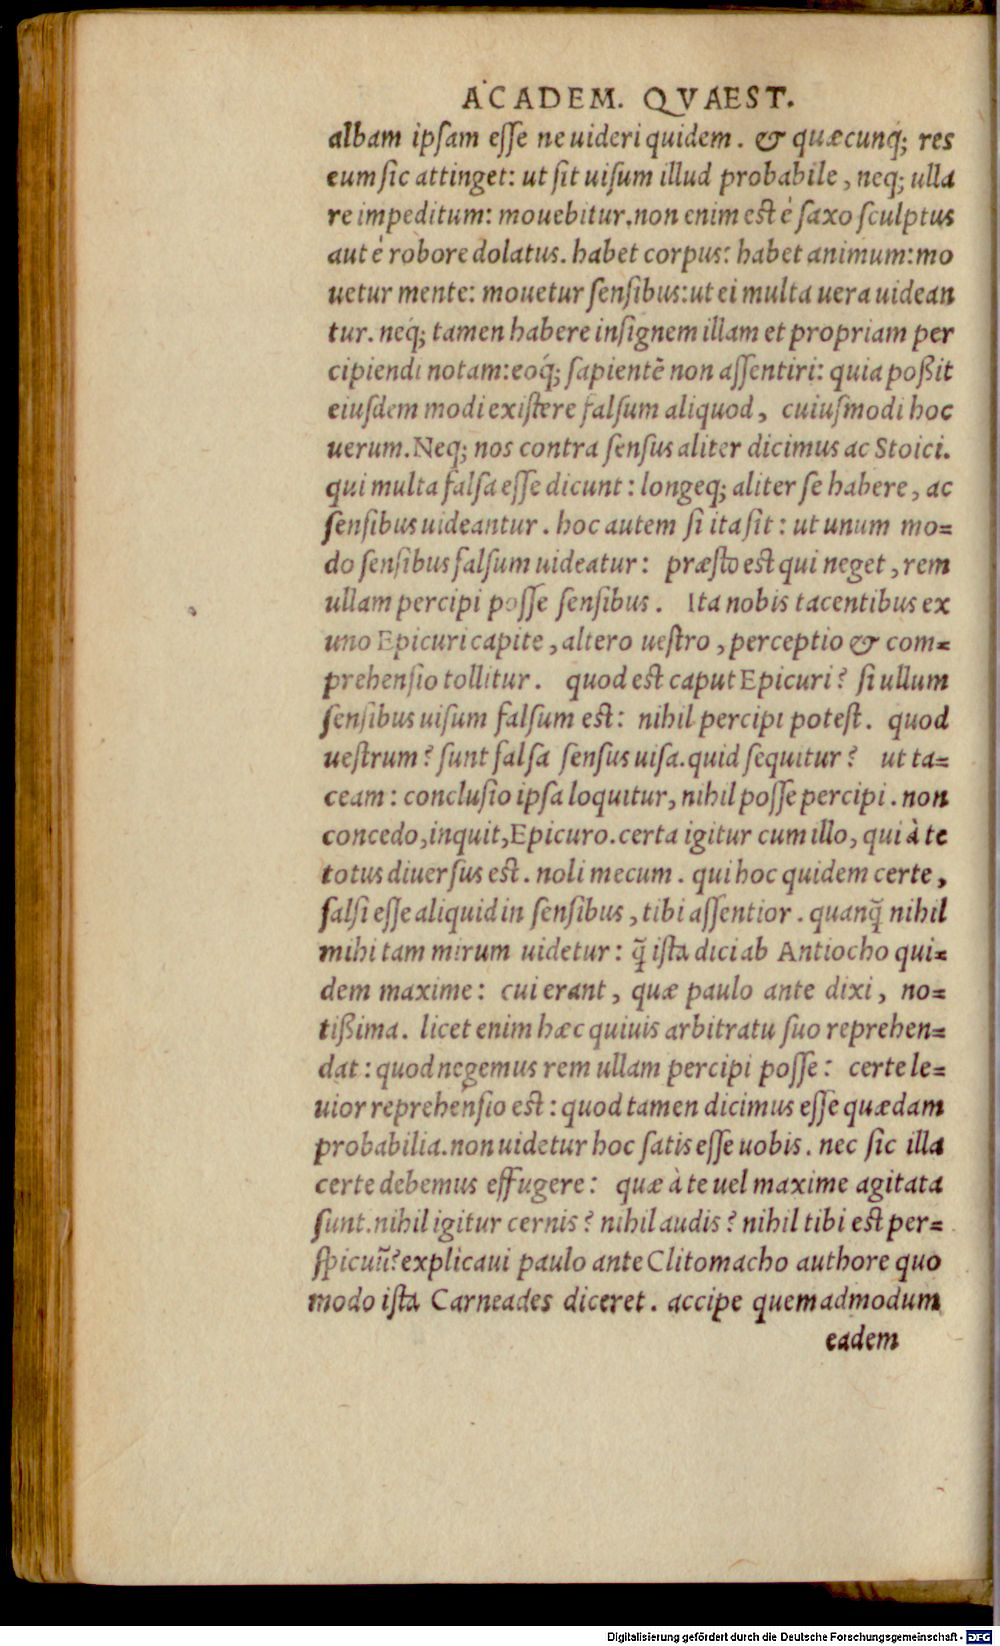 ACADEM. QVAEST.
albam ipſam eſſe ne uideri quidem. & quæcunq́; res
eum ſic attinget: ut ſit uiſum illud probabile, neq; ulla
re impeditum: mouebitur. non enim est è ſaxo ſculptus
aut è robore dolatus. habet corpus: habet animum: mo
uetur mente: mouetur ſenſibus: ut ei multa uera uidean
tur. neq́; tamen habere inſignem illam et propriam per
cipiendi notam: eoq́; ſapientẽ non aſſentiri: quia poßit
eiuſdem modi exiſtere falſum aliquod, cuiuſmodi hoc
uerum. Neq; nos contra ſenſus aliter dicimus ac Stoici.
qui multa falſa eſſe dicunt: longeq; aliter ſe habere, ac
ſenſibus uideantur. hoc autem ſi ita ſit: ut unum mo=
do ſenſibus falſum uideatur: præſto est qui neget, rem
ullam percipi poſſe ſenſibus. Ita nobis tacentibus ex
uno Epicuri capite, altero ueſtro, perceptio & com=
prehenſio tollitur. quod est caput Epicuri? ſi ullum
ſenſibus uiſum falſum est: nihil percipi poteſt. quod
ueſtrum? ſunt falſa ſenſus uiſa. quid ſequitur? ut ta=
ceam: concluſio ipſa loquitur, nihil poſſe percipi. non
concedo, inquit, Epicuro. certa igitur cum illo, qui à te
totus diuerſus est. noli mecum. qui hoc quidem certe,
falſi eſſe aliquid in ſenſibus, tibi aſſentior. quanq̃ nihil
mihi tam mirum uidetur: q̃ iſta dici ab Antiocho qui=
dem maxime: cui erant, quæ paulo ante dixi, no=
tißima. licet enim hæc quiuis arbitratu ſuo reprehen=
dat: quod negemus rem ullam percipi poſſe: certe le=
uior reprehenſio est: quod tamen dicimus eſſe quædam
probabilia. non uidetur hoc ſatis eſſe uobis. nec ſic illa
certe debemus effugere: quæ à te uel maxime agitata
ſunt. nihil igitur cernis? nihil audis? nihil tibi est per=
ſpicuũ? explicaui paulo ante Clitomacho authore quo
modo iſta Carneades diceret. accipe quemadmodum
eadem
Digitalisierung gefördert durch die Deutsche Forschungsgemeinschaft - DFG